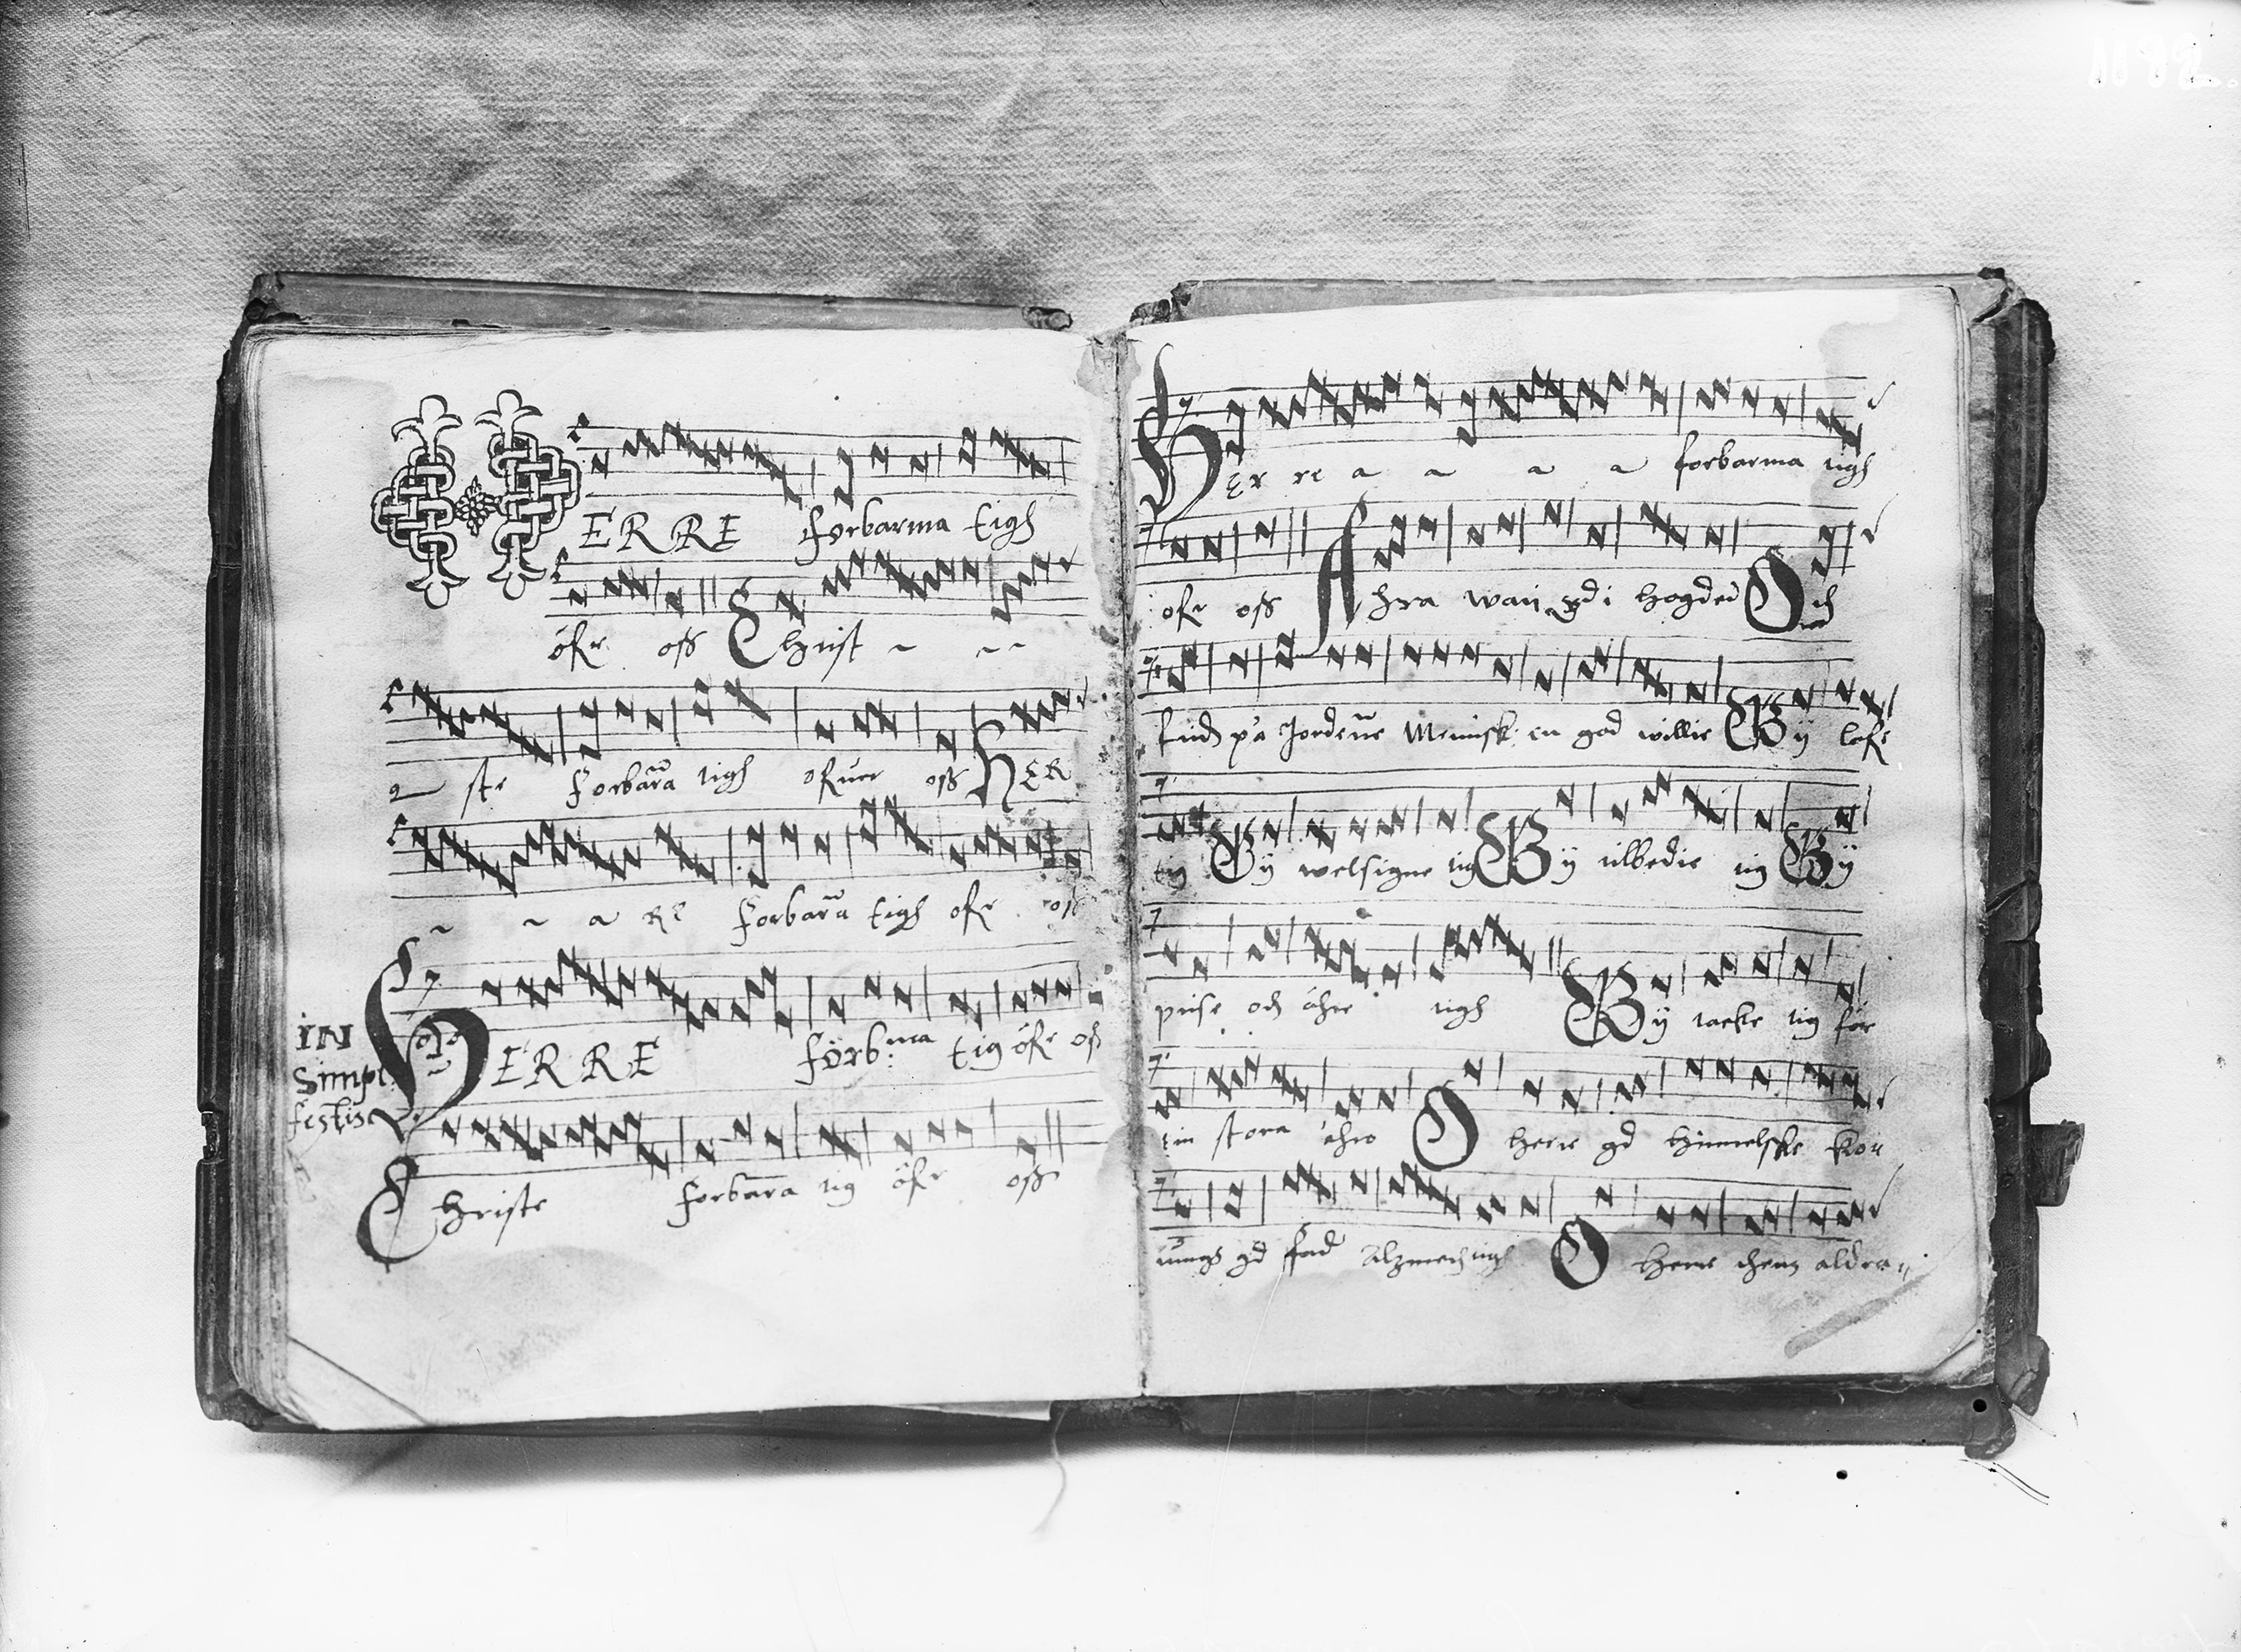 1192.
HERRE forbarma tigh
öfr oss Christ
ste forbar̃a tigh öfuer oss HER
RE forbar̃a tigh ofr oss
IN HERRE förb:ma tig öfr oss
Simpl:
festis
Christe forbar̄a tig öfr oss
Herre a forbarma tigh
ofr oss Ahra wari gdi hogden Och
fridh på Jordenne Mennisk: en god willie Wij lofe
tig Wij welsigne tig Wij tilbedie tig Wij
prise och ähre tigh Wij tacke tig för
tin stora ähro O herre gd himmelske Kon
ungh gd fad Alzmechtigh O herre thens aldra